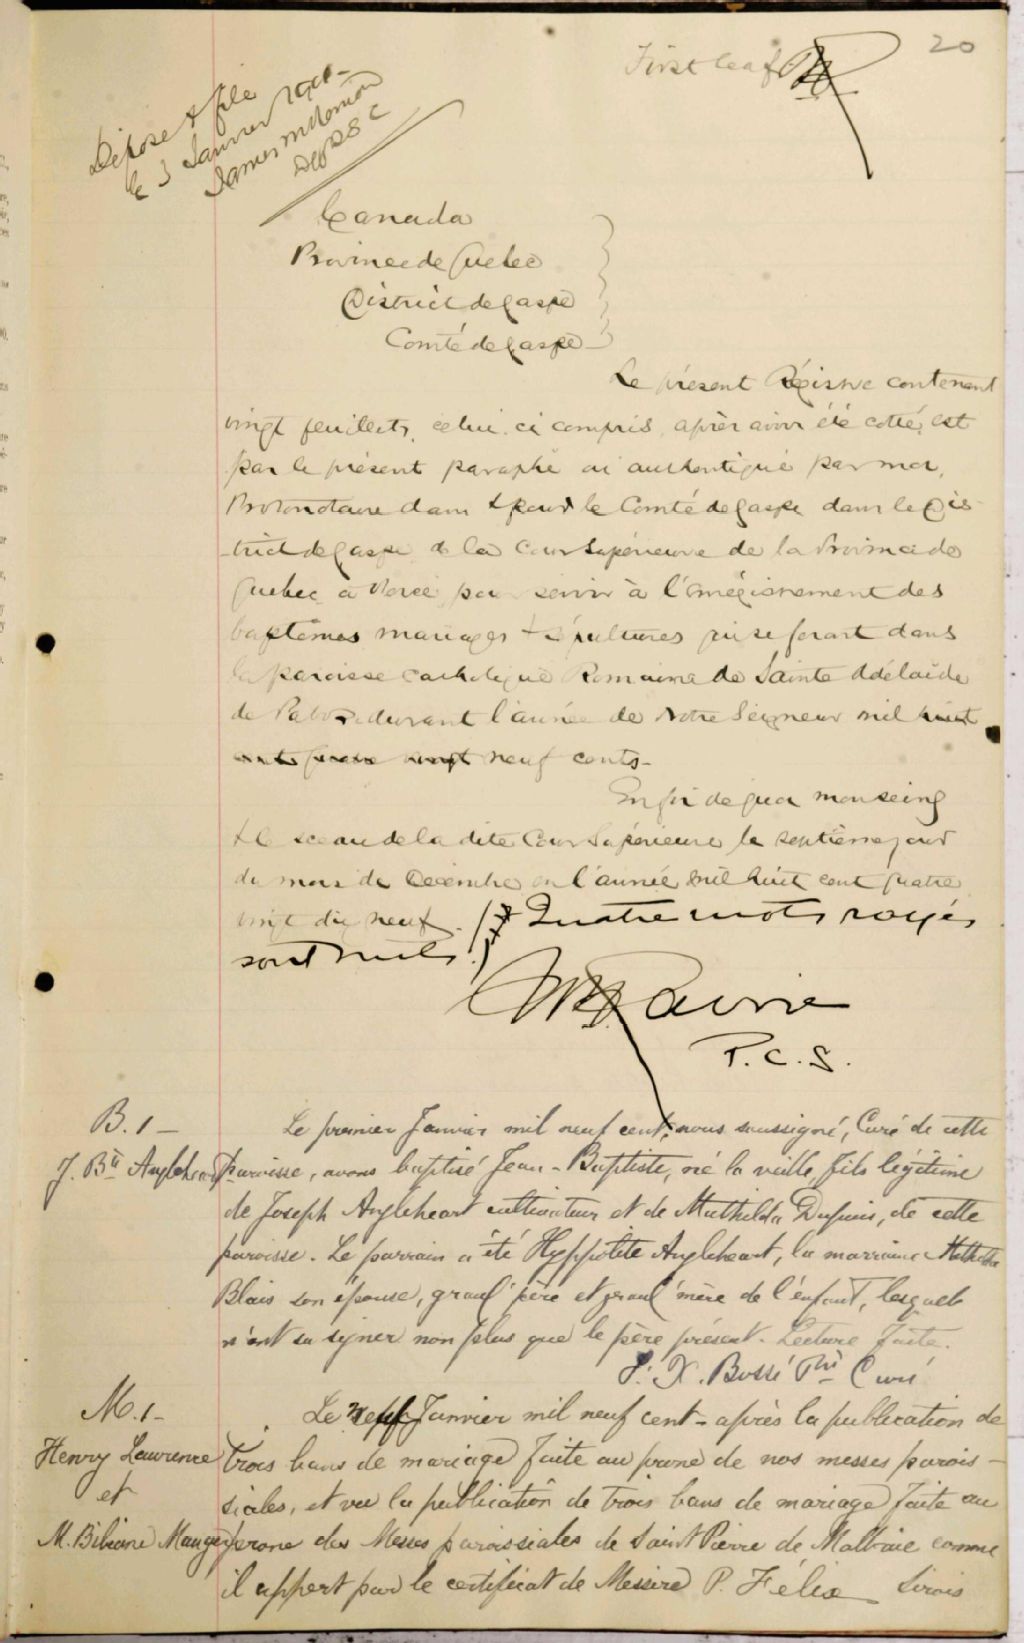 20
First leaf
Déposé & filé
le 3 Janvier
James
Dep
Canada
Province de Quebec
District de Gaspé
Comté de Gaspé
Le présent Régistre contenant
vingt feuillets, celui ci compris, après avoir été cotté, est
par le présent paraphé et authentiqué par moi,
Protonotaire dans & pour le Comté de Gaspé dans le Dis-
-trict de Gaspé de la Cour Supérieure de la Province de
Quebec, à Percé, pour servir à l'enrégistrement des
baptêmes mariages & sépultures qui se feront dans
la paroisse catholique Romaine de Sainte Adélaide
de Pabos durant l'année de Notre Seigneur mil huit
cents quatre vingt neuf cents-
En foi de quoi mon seing
& le sceau de la dite Cour Supérieure le septième jour
du mois de Décembre en l'année mil huit cent quatre
vingt dix neuf. (Quatre mots rayés
sont nuls.)
P.C.S.
B. 1-
J. Bte Angleheart
Le premier Janvier mil neuf cent, nous soussigné, Curé de cette
paroisse, avons baptisé Jean-Baptiste, né la veille, fils légitime
de Joseph Angleheart cultivateur et de Mathilda Dupuis, de cette
paroisse. Le parrain a été Hyppolite Angleheart, la marraine Mathilda
Blais son épouse, grand'père et grand'mère de l'enfant, lesquels
n'ont su signer non plus que le père présent. Lecture faite.
F. X. Bossé Ptre Curé
M. 1-
Henry Lawrence
et
M. Bibiane Mauger
Le neuf Janvier mil neuf cent - après la publication de
trois bans de mariage faite au prone de nos messes parois-
siales, et vu la publication de trois bans de mariage faite au
prone des Messes paroissiales de Saint Pierre de Malbaie comme
il appert par le certificat de Messire P. Félix Sirois